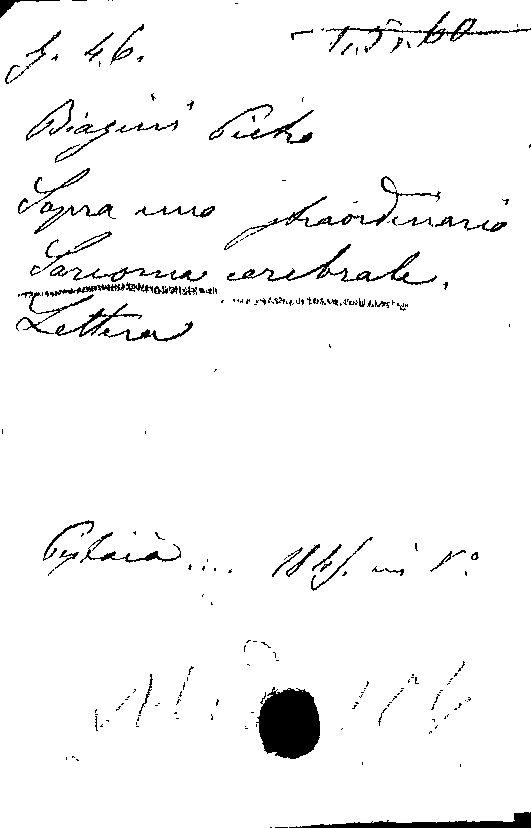 1. 5. 60
G. 46.
Biagini Pietro
Sopra uno straordinario
Sarcoma cerebrale.
Lettera
Pistoia .... 184 in 8º